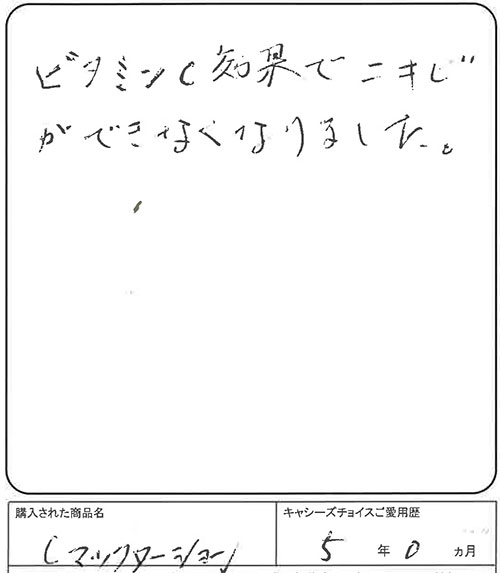 ビタミンC効果でニキビ
ができなくなりました。
購入された商品名
キャシーズチョイスご愛用歴
Cマックローション
5年0ヵ月